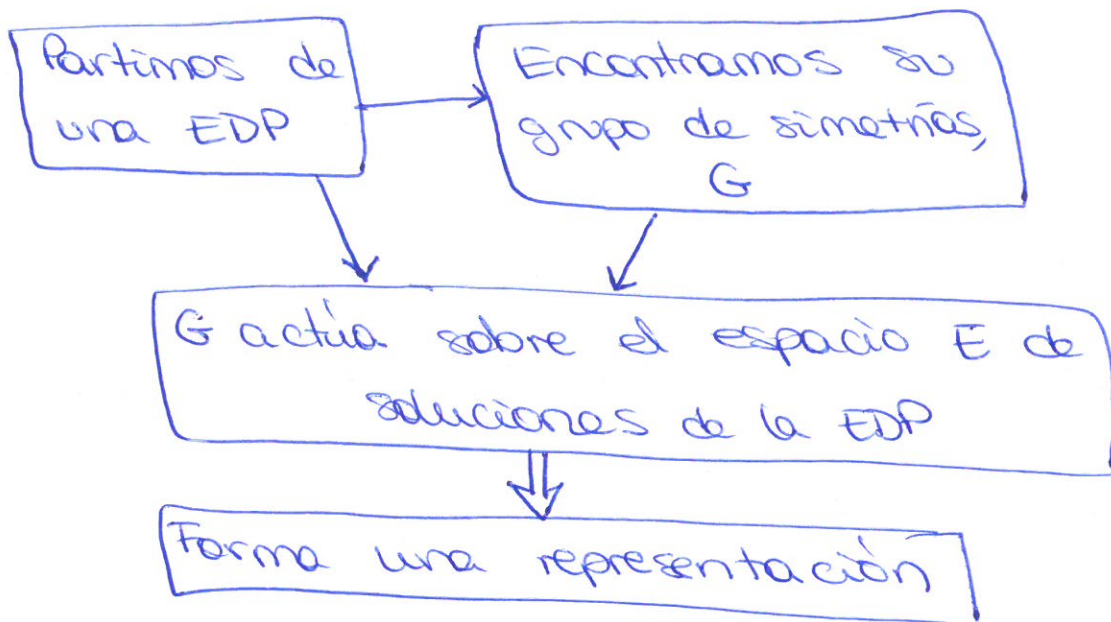 Partimos de
una EDP
Encontramos su
grupo de simetrías,
G
G actúa sobre el espacio E de
soluciones de la EDP
Forma una representación